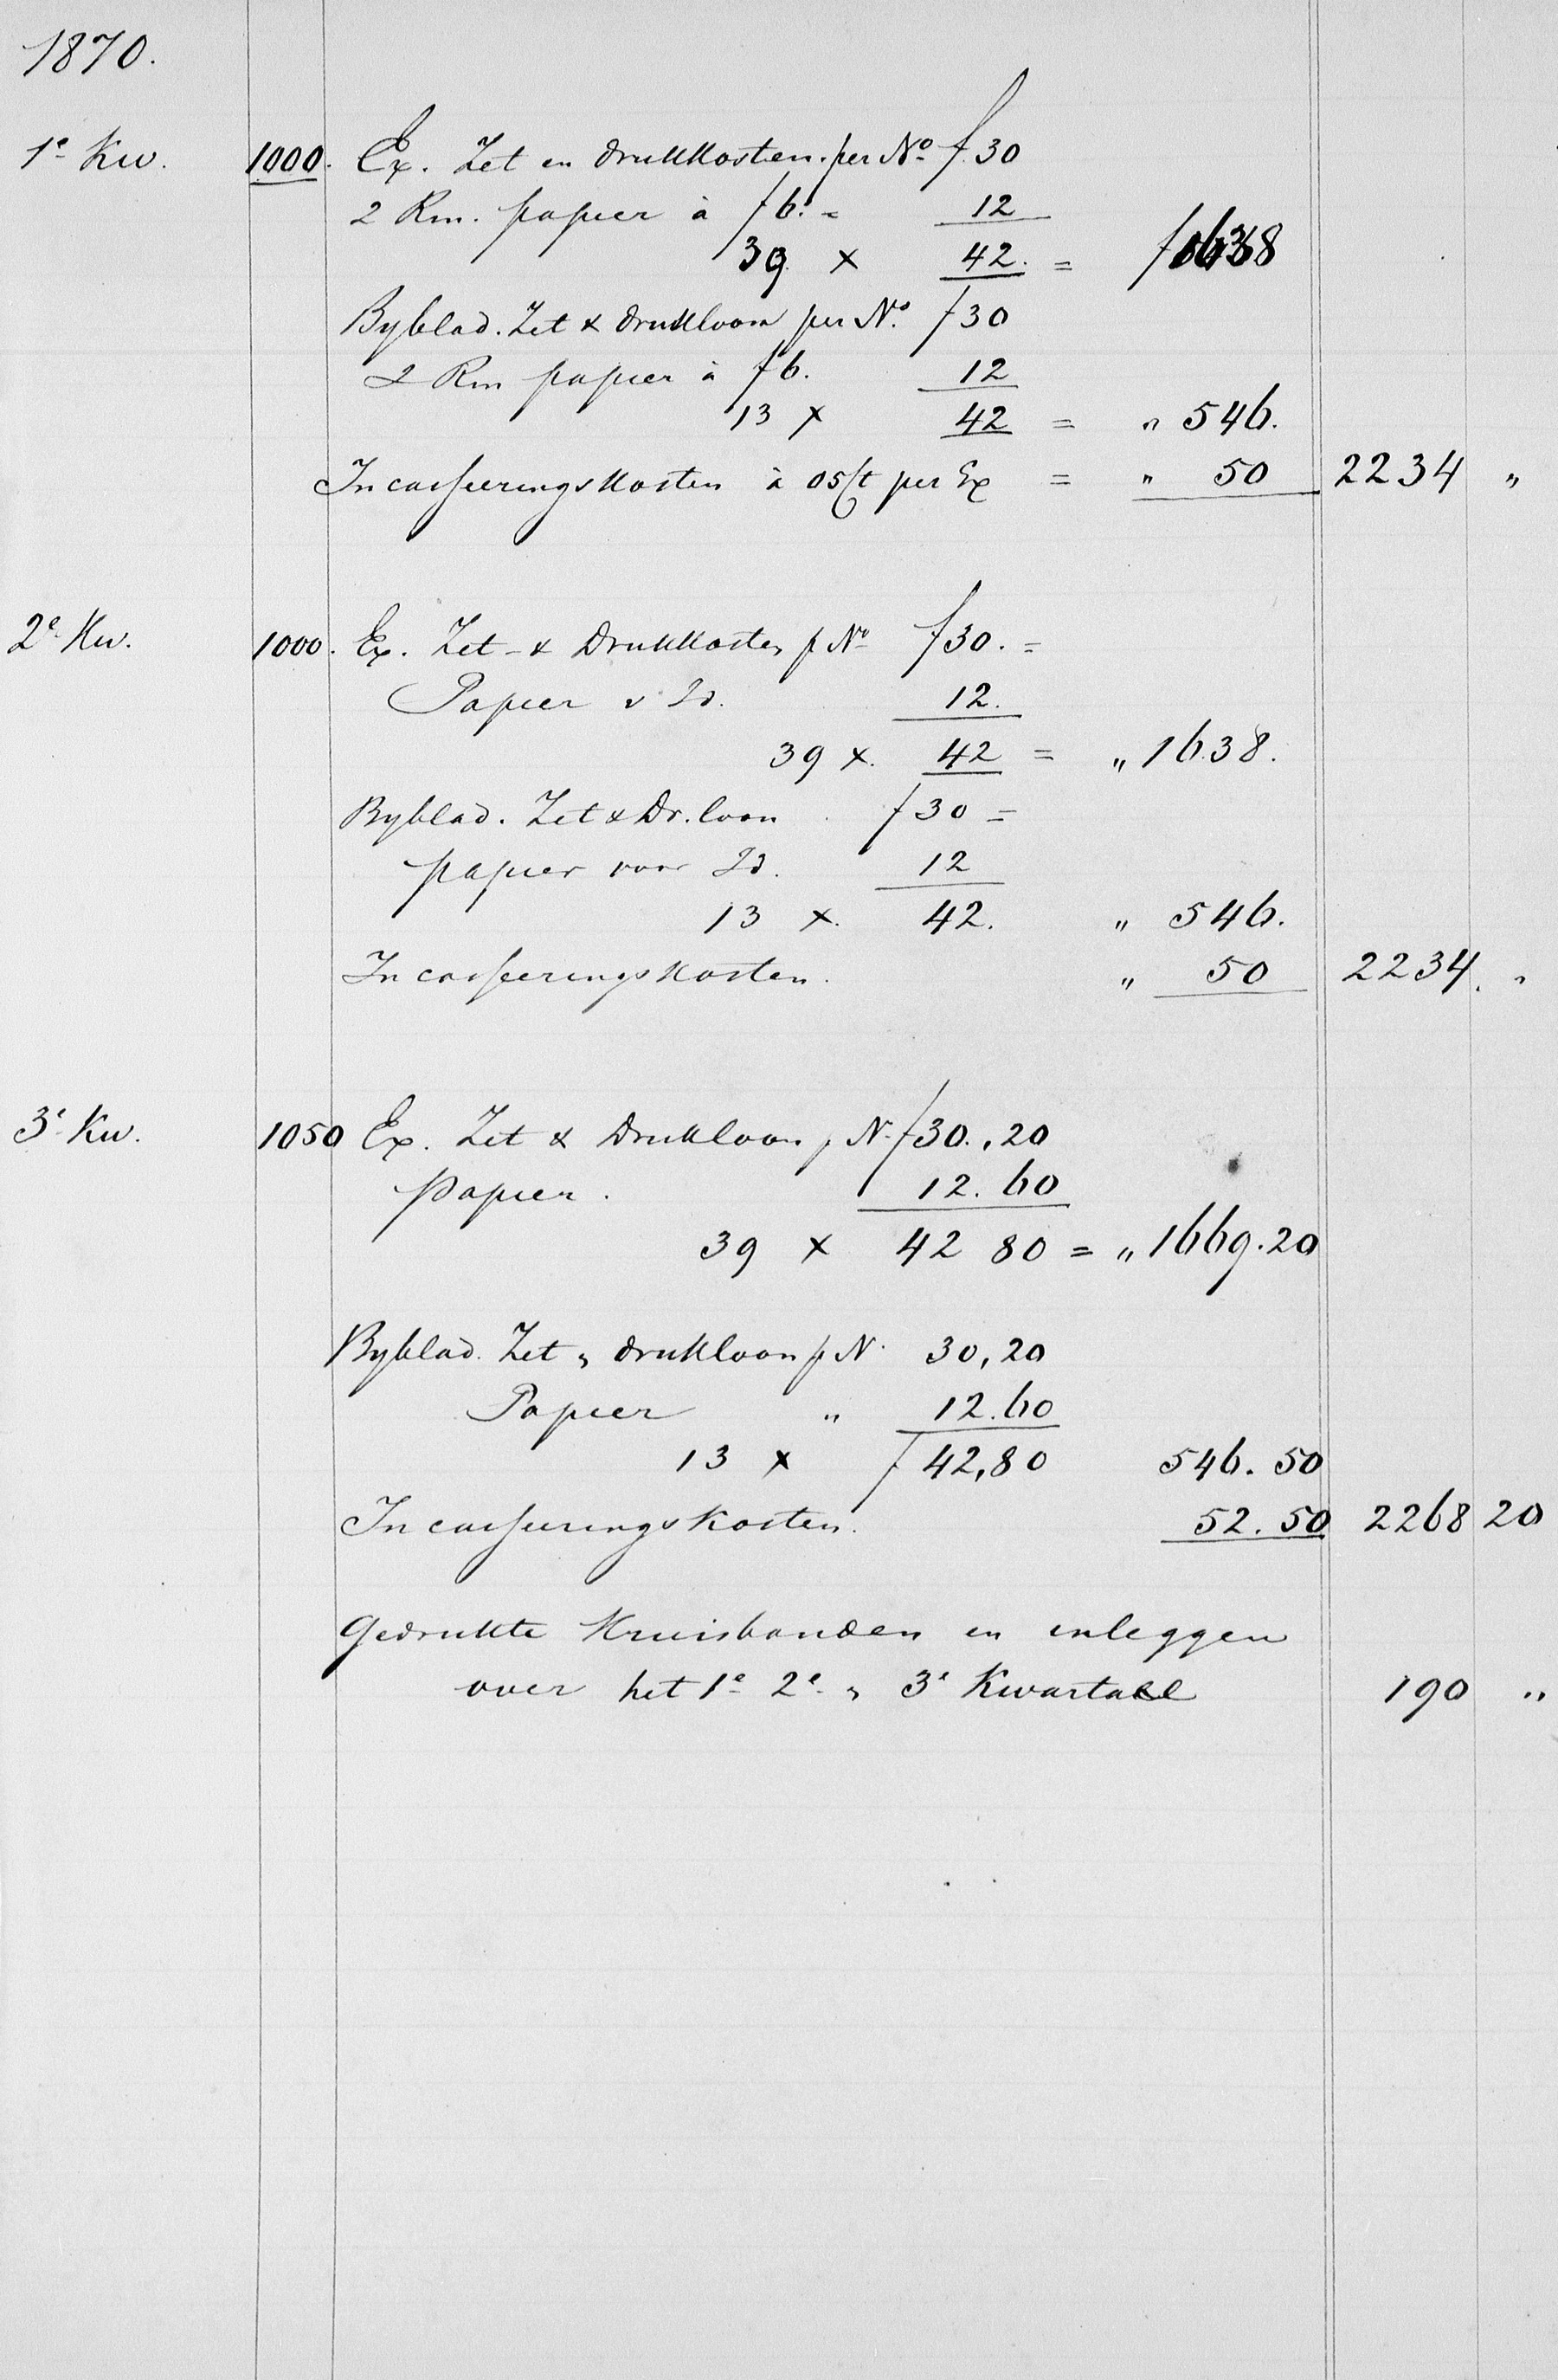 1870.
1e Kw. 1000. Ex. Zet en drukkosten per No. f 30
2 Rm. papier à f 6. = 12
39 x 42. = f 1638
Byblad. Zet & drukloon per No. f 30
2 Rm papier à f 6. 12
13 x 42 = " 546.
Incasseeringskosten à 05 Ct per Ex = " 50 2234 "
2e Kw. 1000. Ex. Zet- & Drukkosten p No f 30. =
Papier v Id. 12.
39 x. 42 = " 1638.
Byblad. Zet & Dr. loon f 30 =
papier voor Id. 12
13 x. 42. " 546.
Incasseeringskosten. " 50 2234. "
3e Kw. 1050 Ex. Zet & Drukloon p N. f 30.,20
Papier. 12.60
39 x 42 80 = " 1669.20
Byblad. Zet " drukloon p N. 30,20
Papier " 12.60
13 x f 42,80 546.50
Incasseeringskosten. 52.50 2268 20
Gedrukte Kruisbanden en inleggen
over het 1e 2e " 3e Kwartaal 190 "